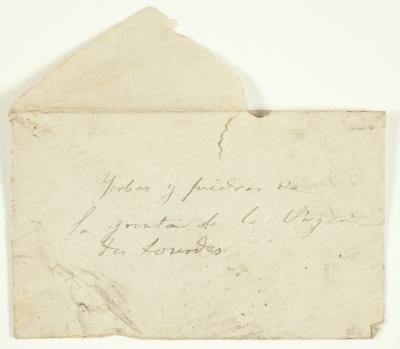 Yerbas y piedras de
la grunta de la Virgen
des Lourdes